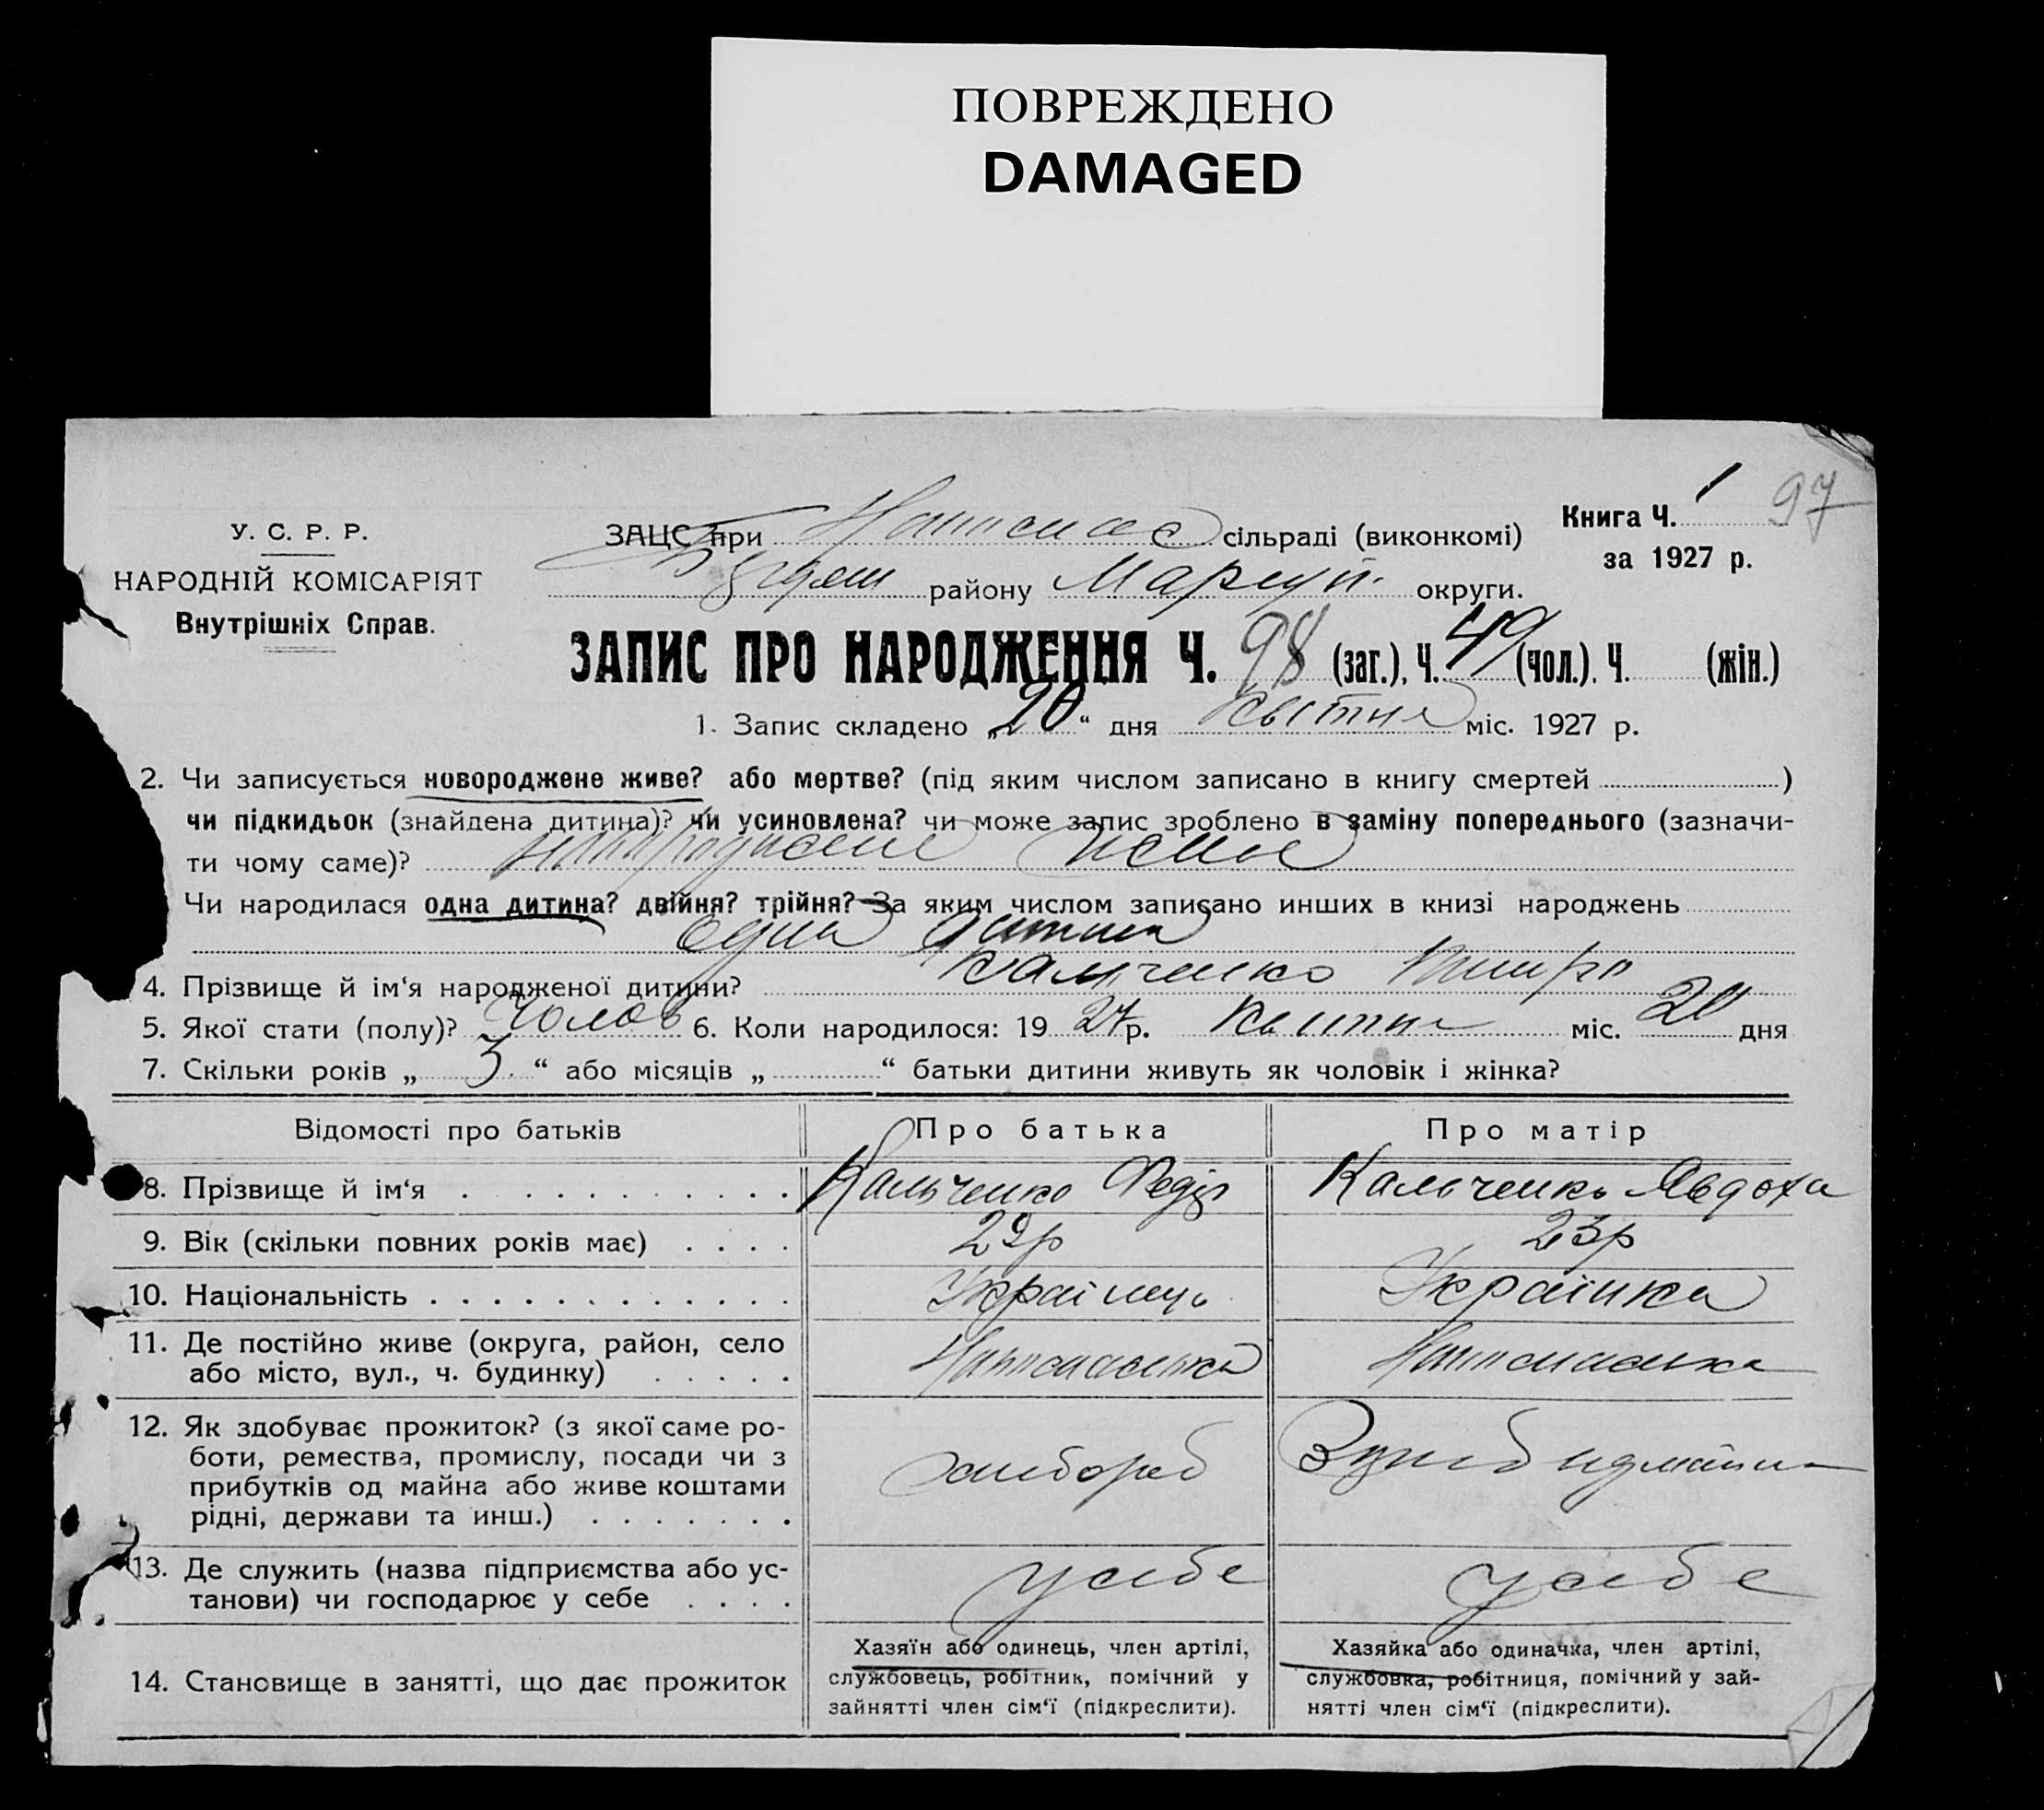 ПОВРЕЖДЕНО
DAMAGED
Книга Ч. 1 97
за 1927 р.
У. С. Р. Р.
НАРОДНІЙ КОМІСАРІЯТ
Внутрішніх Справ.
ЗАЦС при сільраді (виконкомі)
району Маріуп. округи.
ЗАПИС ПРО НАРОДЖЕННЯ Ч. 98 (заг.), Ч. 49 (чол.). Ч. (жін.)
1. Запис складено „20“ дня Квітня міс. 1927 р.
2. Чи записується новороджене живе? або мертве? (під яким числом записано в книгу смертей )
чи підкидьок (знайдена дитина)? чи усиновлена? чи може запис зроблено в заміну попереднього (зазначи-
ти чому саме)? новороджене живе
Чи народилася одна дитина? двійня? трійня? За яким числом записано инших в книзі народжень
одна дитина
4. Прізвище й ім‘я народженої дитини? Кальченко
5. Якої стати (полу)? Чолов 6. Коли народилося: 19 27 р. Квітня міс. 20 дня
7. Скільки років „ 3 “ або місяців „ “ батьки дитини живуть як чоловік і жінка?
Відомості про батьків Про батька Про матір
8. Прізвище й ім‘я Кальченко Федір Кальченко Явдоха
9. Вік (скільки повних років має) 29р 23р
10. Національність Українець Українка
11. Де постійно живе (округа, район, село
або місто, вул., ч. будинку)
12. Як здобуває прожиток? (з якої саме ро-
боти, ремества, промислу, посади чи з
прибутків од майна або живе коштами
рідні, держави та инш.) хлібороб
13. Де служить (назва підприємства або ус-
танови) чи господарює у себе у себе у себе
14. Становище в занятті, що дає прожиток
Хазяїн або одинець, член артілі,
службовець, робітник, помічний у
зайнятті член сім‘ї (підкреслити).
Хазяйка або одиначка, член артілі,
службовка, робітниця, помічний у зай-
нятті член сім‘ї (підкреслити).